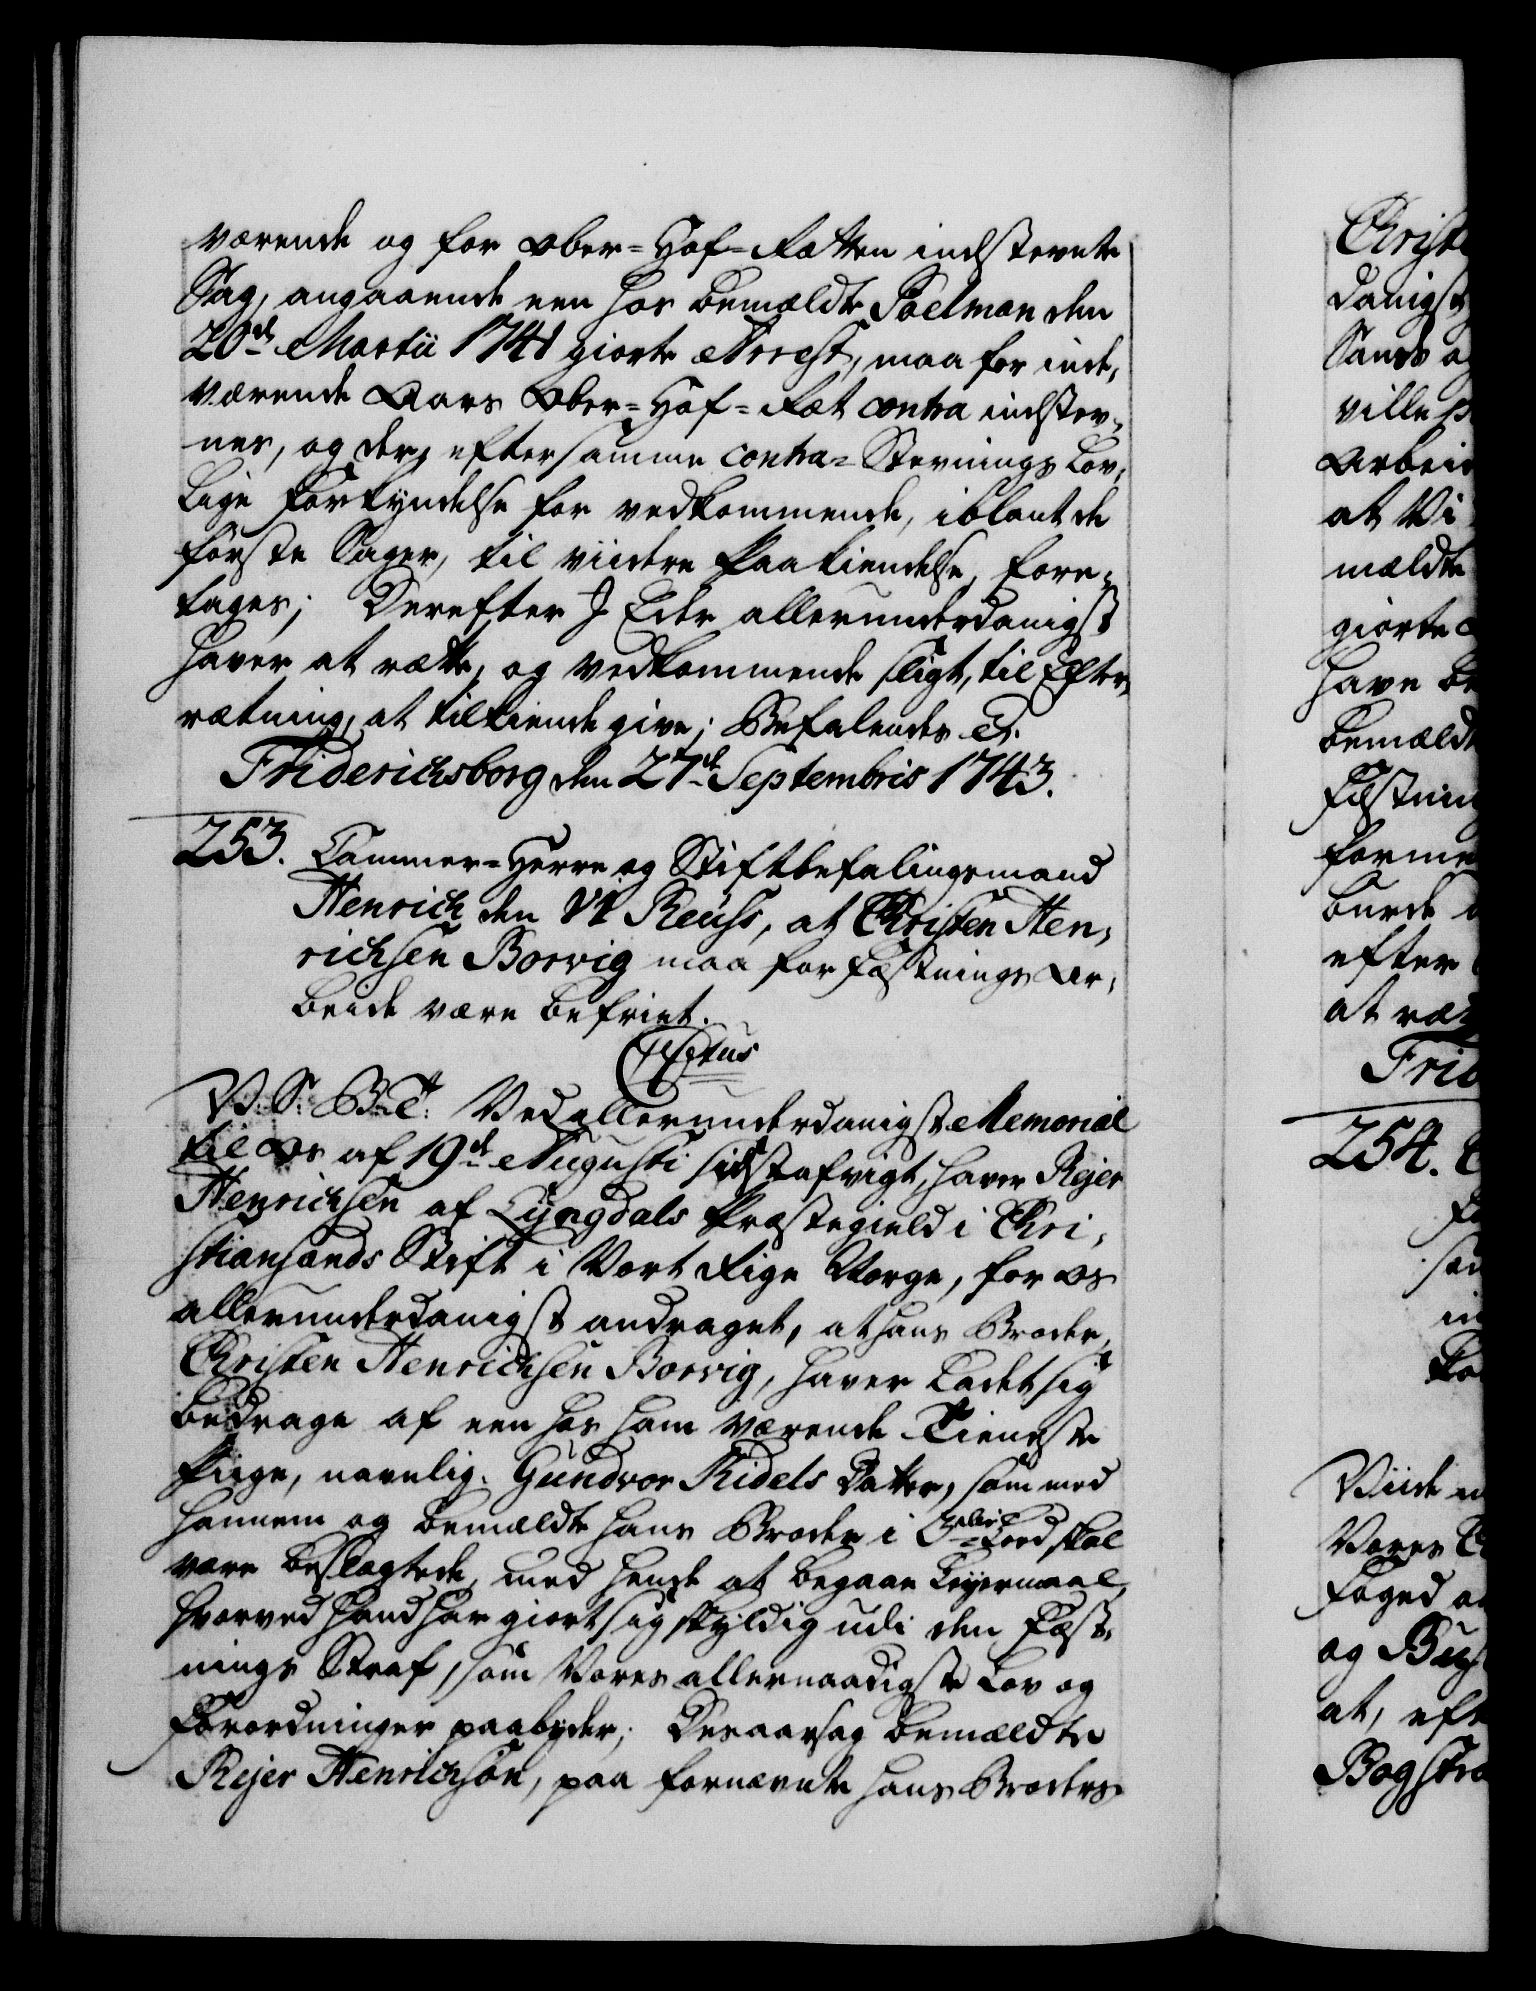 værende og for Ober-Hof-Rætten indstevnte
Sag, angaaende een hos bemældte Poelman den
20de Martii 1741 giorte Arrest, maa for inde-
værende Aars Ober-Hof-Ræt contra indstev-
nes, og der, efter samme contra-Stevnings Lov-
lige Forkyndelse for vedkommende, iblant de
første Sager, til viidere Paakiendelse, fore-
tages; Derefter I Eder allerunderdanigst
haver at rætte, og vedkommende sligt, til Efter-
rætning, at tilkiende give; Befalendes etc.
Friderichsborg den 27de Septembris 1743.
253. Cammer-Herre og Stiftbefalingsmand
Henrich den VI Reuss, at Christen Hen-
richsen Borvig maa for Fæstnings Ar-
beide være befriet.
CSextus
V: S: B: etc: Ved allerunderdanigst Memorial
til Os af 19de Augusti sidstafvigt, haver Rejer
Henrichsen af Lyngdals Præstegield i Chri-
stiansands Stift i Vort Rige Norge, for Os
allerunderdanigst andraget, at hans Broder,
Christen Henrichsen Borvig, haver ladet sig
bedrage af een hos ham værende Tieneste
Piige, navnlig: Gundvor Kidels Datter, som med
hannem og bemældte hans Broder i 3die Leed skal
være beslægtede, med hende at begaae Leyermaal,
hvorved hand har giort sig skyldig udi den Fæst-
nings Straf, som Vores allernaadigste Lov og
Forordninger paabyder; Desaarsag bemældte
Rejer Henrichsøn, paa fornævnte hans Broders
Christe
danigst
Sands a
ville p
Arbeid
at Vi
mældte
giorte
have be
bemældt
Fæstning
forme
burde
efter
at ræt
Frid
254.
Viide
Vores
Foged
og Bus
at, eft
Bogstra